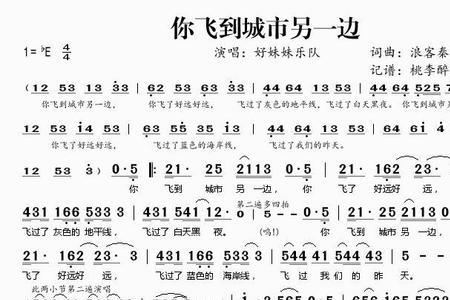 你飞到城市另一边
1=ᵇE 4/4
演唱：好妹妹乐队
词曲：浪客秦
记谱：桃李醉
(12 53 13 33 | 62 53 13 53 | 44 64 13 53 | 44 64 525 7
你飞到城市另一边， 你飞了好远好远， 飞过了灰色的地平线，飞过了白天黑夜。 你飞到城市另
12 53 14 53 | 63 55 35 33 | 44 64 13 53 | 44 64
你飞了好远好远， 飞过了蓝色的海岸线， 飞过了我们的昨天。
12 53 3) 0·5 ‖: 21· 25 2113 0·5 | 21· 162 23·
你 飞到 城市 另一边， 你 飞了 好远好 远，
431 166 533 3 | 431 541 12· 0·5 | 21· 25 2113
第二遍多四拍
飞过了 灰色的 地平线， 飞过了 白天黑 夜。 (呜!) 你 飞到 城市 另一边，
21· 162 23· | 431 166 533 3 | 544 41 544 43 |
飞了 好远好 远， 飞过了 蓝色的 海岸线， 飞过我们的昨天。
此两小节第二遍演唱